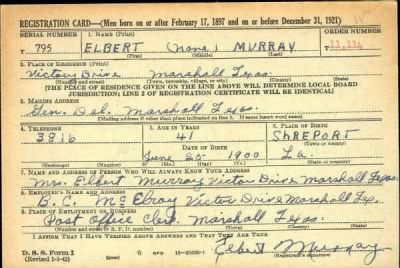 REGISTRATION CARD—(Men born on or after February 17, 1897 and on or before December 31, 1921)
SERIAL NUMBER 1. NAME (Print) ORDER NUMBER
T 795 ELBERT (none) MURRAY 11,114
(First) (Middle) (Last)
2. PLACE OF RESIDENCE (Print)
Victory Drive Marshall Texas.
(Number and street) (Town, township, village, or city) (County) (State)
[THE PLACE OF RESIDENCE GIVEN ON THE LINE ABOVE WILL DETERMINE LOCAL BOARD
JURISDICTION; LINE 2 OF REGISTRATION CERTIFICATE WILL BE IDENTICAL]
3. MAILING ADDRESS
Gen. Del. Marshall Texas.
[Mailing address if other than place indicated on line 2. If same insert word same]
4. TELEPHONE 5. AGE IN YEARS 6. PLACE OF BIRTH
3816 41 ShREPORT
DATE OF BIRTH (Town or county)
June 25 1900 La.
(Exchange) (Number) (Mo.) (Day) (Yr.) (State or country)
7. NAME AND ADDRESS OF PERSON WHO WILL ALWAYS KNOW YOUR ADDRESS
Mrs. Elbert Murray Victor Drive Marshall Texas.
8. EMPLOYER'S NAME AND ADDRESS
B. C. McElroy Victor Drive Marshall Tex.
9. PLACE OF EMPLOYMENT OR BUSINESS
Post Office Clerk Marshall Texas.
(Number and street or R. F. D. number) (Town) (County) (State)
I AFFIRM THAT I HAVE VERIFIED ABOVE ANSWERS AND THAT THEY ARE TRUE.
D. S. S. Form 1
(Revised 1-1-42) (over)
Elbert Murray
(Registrant's signature)